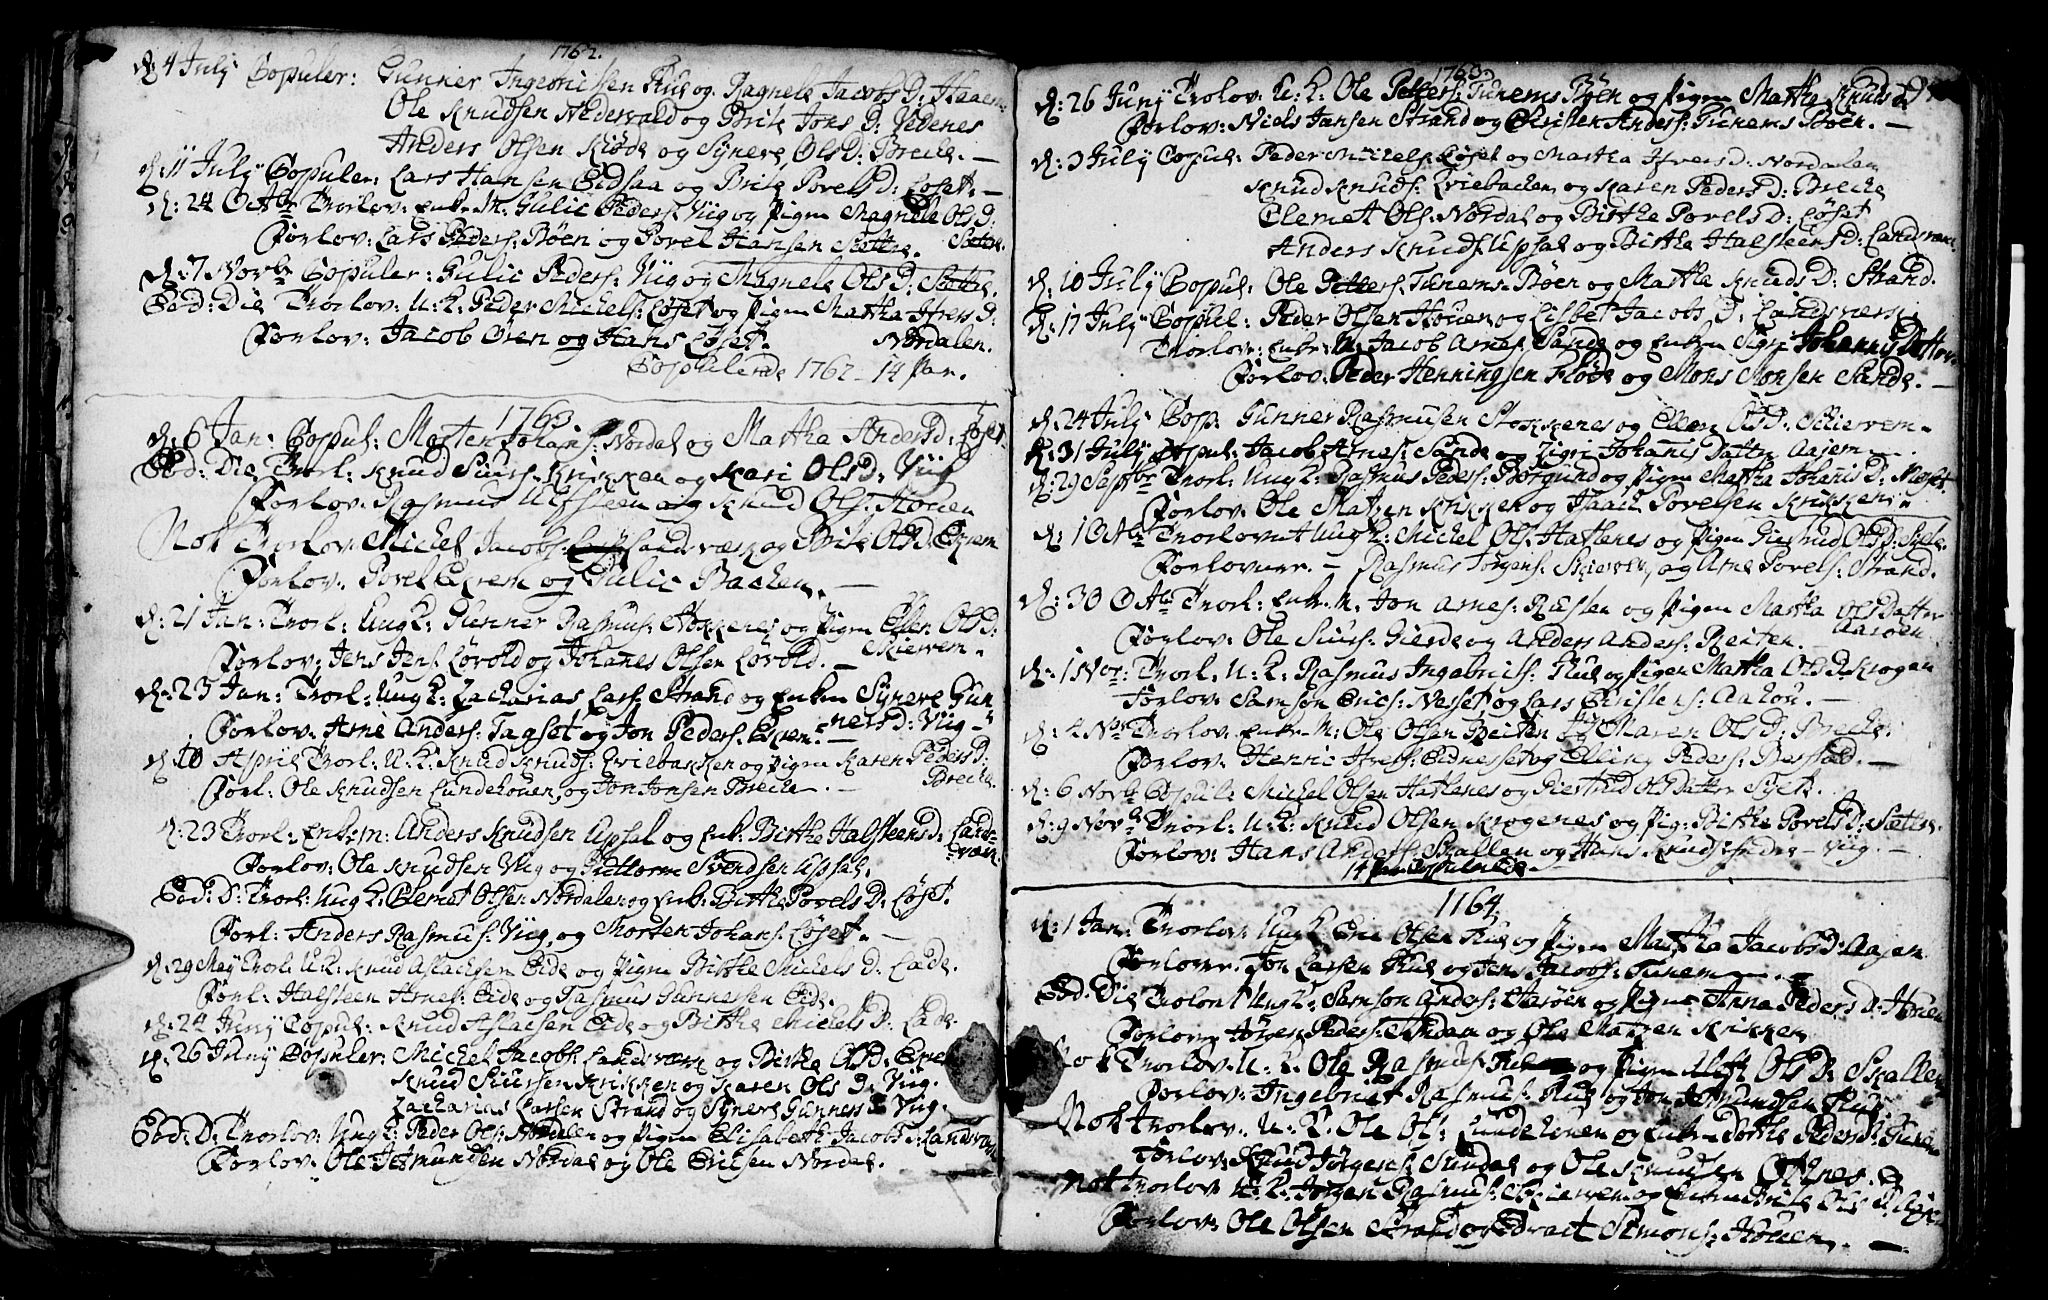 1762.
d: 4 July Copuler: Gunner Ingebricksen Rud og Ragnele Jacobs D:
Ole Knudsen Nedervald og Brite Jons D: Vedenes
Anders Olsen Kiøde og Syneve Ols D: Brecke. —
d: 11 July Copuler: Lars Hansen Eidsaa og Brite Povels D: Løset. —
d: 24 Octbr Trorlov: Enk. M: Gulic Peders: Viig og Pigen Magnele Ols D: Sættre.
Forlov: Lars Peders: Bøen og Povel Hansen Sættre.
d: 7 Novbr Copuler: Gulic Peders: Viig og Magnele Ols D: Sættre.
Eod: Die Trorlov: U: K: Peder Michels: Løset og Pigen Martha Ivers D: Nordalen.
Forlov: Jacob Øren og Hans Løset.
Copulerede 1762 – 14 Par.
1763.
d: 6 Jan: Copul: Morten Johans: Nordal og Martha Anders D: Løset
Eod: Die Trorl: Knud Siurs: Krikken og Kari Ols D: Viig
Forlov: Rasmus Ulfsteen og Knud Ols: Houen
Nok Trorlov: Michel Jacobs: Landsværk og Brite Ols D: Ekrem
Forlov: Povel Ekrem og Gulic Backen. —
d: 21 Jan: Trorl: Ung K: Gunner Rasmus: Stokkenes og Pigen Ellen Ols D: Skiervem
Forlov: Jens Jens: Løvold og Johanes Olsen Løvold. —
d: 23 Jan: Trorl: Ung K: Zacharias Lars: Strand og Enken Syneve Gun
Forlov: Arne Anders: Tagset og Jon Peders: Ekrem. — ners D: Viig —
d: 10 April Trorl: U: K: Knud Knuds: Lviebakken og Pigen Karen Peders D: Brecke
Forl: Ole Knudsen Lundehouen, og Jon Jonsen Brecke. —
d: 23 Trorl: Enk. m: Anders Knudsen Upsal og Enk: Birthe Halsteens D: Lands-
Forlov: Ole Knudsen Viig og Guttorm Svendsen Upsal. værk
Eod: D: Trorl: Ung K: Clemet Olsen Nordalen og Enk: Birthe Povels D: Løset.
Forl: Anders Rasmus: Viig, og Morten Johans: Løset. —
d: 29 May Trorl: U: K: Knud Aslachsen Eide og Pigen Birthe Michels D: Lade.
Forl: Halsteen Arnes: Eide og Rasmus Gunnersen Eide.
d: 24 Juny Copul: Knud Aslacsen Eide og Birthe Michels D: Lade.
d: 26 Juny Copuler: Michel Jacobs: Landsværk og Birthe Ols D: Ekre
Knud Siursen Krikken og Karen Ols D: Viig.
Zacharias Larsen Strand og Syneve Gunners D: Viig.
Eod: D: Trorlov: Ung K: Peder Ols: Nordalen og Pigen Elisabeth Jacobs D: Landsværk
Forlov: Ole Amunden Nordal og Ole Ericsen Nordal.
1763.
d: 26 Juny Trolov: U: K: Ole Petters: Tunems Bøen og Pigen Martha Knuds D
Forlov: Niels Jansen Strand og Christen Anders: Tunems Bøen. —
d: 3 July Copul: Peder Michels: Løset og Martha Ivers D: Nordalen
Knud Knuds: Lviebacken og Karen Peders D: Brecke
Clemet Ols: Nordal og Birthe Povels D: Løset
Anders Knuds: Upsal og Birthe Halsteens D: Landsværk
d: 10 July Copul: Ole Petters: Tunems Bøen og Marthe Knuds D: Strand.
d: 17 July Copul: Peder Olsen Houen og Lisbet Jacobs D: Landsværk
Trorlov: Enk: M: Jacob Arnes: Sande og Enken Sigri Johannis Datter
Forlov: Peder Henningsen Fløde og Mons Monsen Sande. —
d: 24 July Cop: Gunner Rasmusen Stokkenes og Ellen Ols D: Skiervem
d: 31 July Copul: Jacob Arnes: Sande og Zigri Johanis Datter Aasem
d: 29 Septbr Trorl: Ung K: Rasmus Peders: Borgund og Pigen Martha Johanis D: Myset
Forlov: Ole Matzen Krikken og Isaach Povelsen Krikken
d: 1 Octbr Trorlov: Ung K: Michel Ols: Hatlenes og Pigen Giertrud Ols D: Syete.
Forlover. — Rasmus Jørgens: Skierve, og Arne Povels: Strand.
d: 30 Octbr Trorl: Enk. M. Jon Arnes: Røsten og Pigen Martha Ols Datter Aarøen
Forlov: Ole Siurs: Gierde og Anders Anders: Reiten.
d: 1 Nov: Trorl: U: K: Rasmus Ingebricts: Rud og Pigen Martha Ols D: Krogen
Forlov: Samson Erics: Nesset og Lars Christens: Aakou. —
d: 4 Nov Trorlov: Enk. M: Ole Olsen Reiten og Maren Ols D: Brecke
Forlov: Henric Ivers: Eidnesset og Elling Peders: Berstad. —
d: 6 Novbr Copul: Michel Olsen Hatlenes og Giertrud Ols Datter Syete.
d: 9 Novbr Trorl: U: K: Knud Olsen Krogenes og Pig: Birthe Povels D: Sætter.
Forlov: Hans Anders: Skallen og Hans Knuds: Indre – Viig. —
14 Par Copulerede.
1164
d: 1 Jan: Trorlov: Ung K: Eric Olsen Rud og Pigen Martha Jacobs D: Aasen.
Forlover. Jon Larsen Rud og Jens Jacobs: Tunem
Eod: Die Trolov: Ung K: Samson Anders: Aarøen og Pigen Anna Peders D: Houen
Forlov: Jørgen Peders: Tandem og Ole Matzen Kikken
Nok Trorlov: U: K: Ole Rasmus: Rud og Pigen Marit Ols D: Skallen
Forlov: Ingebrict Rasmus: Rud og Jon Amundsen Rud
Nok trorlov: U: K: Ole Ols: Lundehouen og Enken Dorthe Peders D: Tunem
Forlov: Knud Jørgens: Sundal og Ole Knudsen Otlnes.
Nok Trorlov: U: K: Jørgen Rasmus: Skiervem og Enken Brite Ols D:
Forlov: Ole Olsen Strand og Edvart Simons: Houen. —